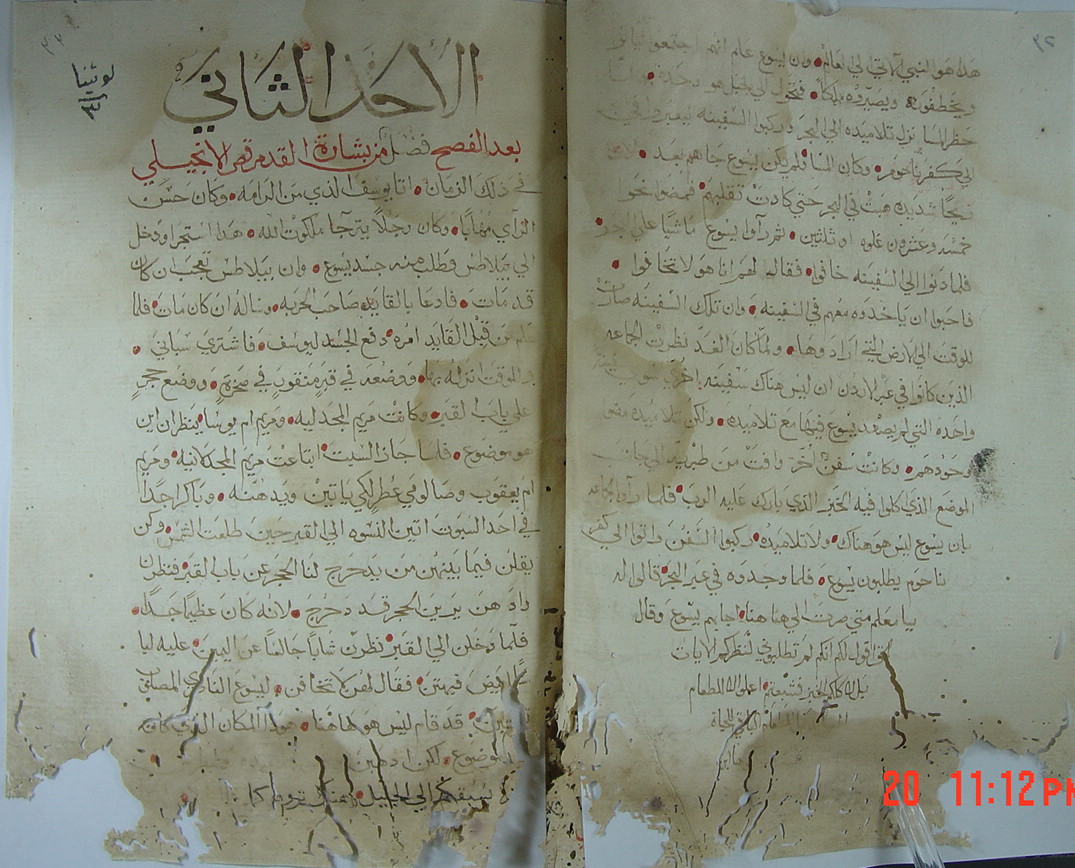 ٣٢
هذا هو النبي الاتي الي العالم وان يسوع علم انهم اجتمعوا لياتوا
ويخطفوه ويصيروه ملكا فتحول الي الجبل هو وحده
حظر المسا نزل تلاميذه الي البحر وركبوا السفينه ليعبروا في
الي كفرناحوم وكان المسا ولم يكن يسوع جاهم بعد
ريحا شديده هبت في البحر حتي كادت تقلبهم فمضوا نحو
خمسه وعشرون غلوه او ثلثين ثم راوا يسوع ماشيا علي البحر
فلما دنوا الي السفينه خافوا فقال لهم انا هو لا تخافوا
فاحبوا ان ياخدوه معهم في السفينه وان تلك السفينه صارت
للوقت الي الارض التي ارادوها ولما كان الغد نظرت الجماعه
الذين كانوا في عبر الاردن ان ليس هناك سفينه اخري سوي
واحده التي لم يصعد يسوع فيها مع تلاميذه ولكن تلاميذه مضوا
وحودهم وكانت سفن اخر وافت من طبريه الي جانب
الموضع الذي كلوا فيه الخبز الذي بارك عليه الرب فلما راوا الجماعه
بان يسوع ليس هو هناك ولا تلاميذه ركبوا السفن واتوا الي كفر
ناحوم يطلبون يسوع فلما وجدوه في عبر البحر قالوا له
يا معلم متي صرت الي هنا هنا اجابهم يسوع وقال
اقول لكم انكم لم تطلبوني لنظركم الايات
بل لاكلكم الخبز فشبعتم اعملوا لا للطعام
الطعام الباقي للحياه
لوثينا
٣
الاحد الثاني
بعد الفصح فصل من بشارة القدس مرقص الانجيلي
في ذلك الزمان اتا يوسف الذي من الرامه وكان حسن
الراي مهابا وكان رجلا يترجا ملكوت الله هذا استجرا ودخل
الي بيلاطس وطلب منه جسد يسوع وان بيلاطس تعجب ان كان
قد مات فادعا بالقايد صاحب الحربه وساله ان كان مات فلما
علم من قبل القايد امره دفع الجسد ليوسف فاشتري سباني
الموقت انزله بها ووضعه في قبر منقور في صخره ووضع حجر
علي باب القبر وكانت مريم المجدليه ومريم ام يوسا ينظران اين
هو موضوع فلما جاز السبت ابتاعت مريم المجدلانيه ومريم
ام يعقوب وصالومي عطر لكي ياتين ويدهنه وباكرا جدا
في احد السبوت اتين النسوه الي القبر حين طلعت الشمس وكن
يقلن فيما بينهن من يدحرج لنا الحجر عن باب القبر فنظرن
واذ هن يرين الحجر قد دحرج لانه كان عظيما جدا
فلما دخلن الي القبر نظرن شابا جالسا عن اليمين عليه لباسا
ابيض فبهتن فقال لهن لا تخافن ليسوع الناصري المصلوب
قد قام ليس هو هاهنا هوذا المكان الذي كان
موضوع لكن اذهبن
يسبقكم الي الجليل هناك ترونه كما
20 11:12 PM